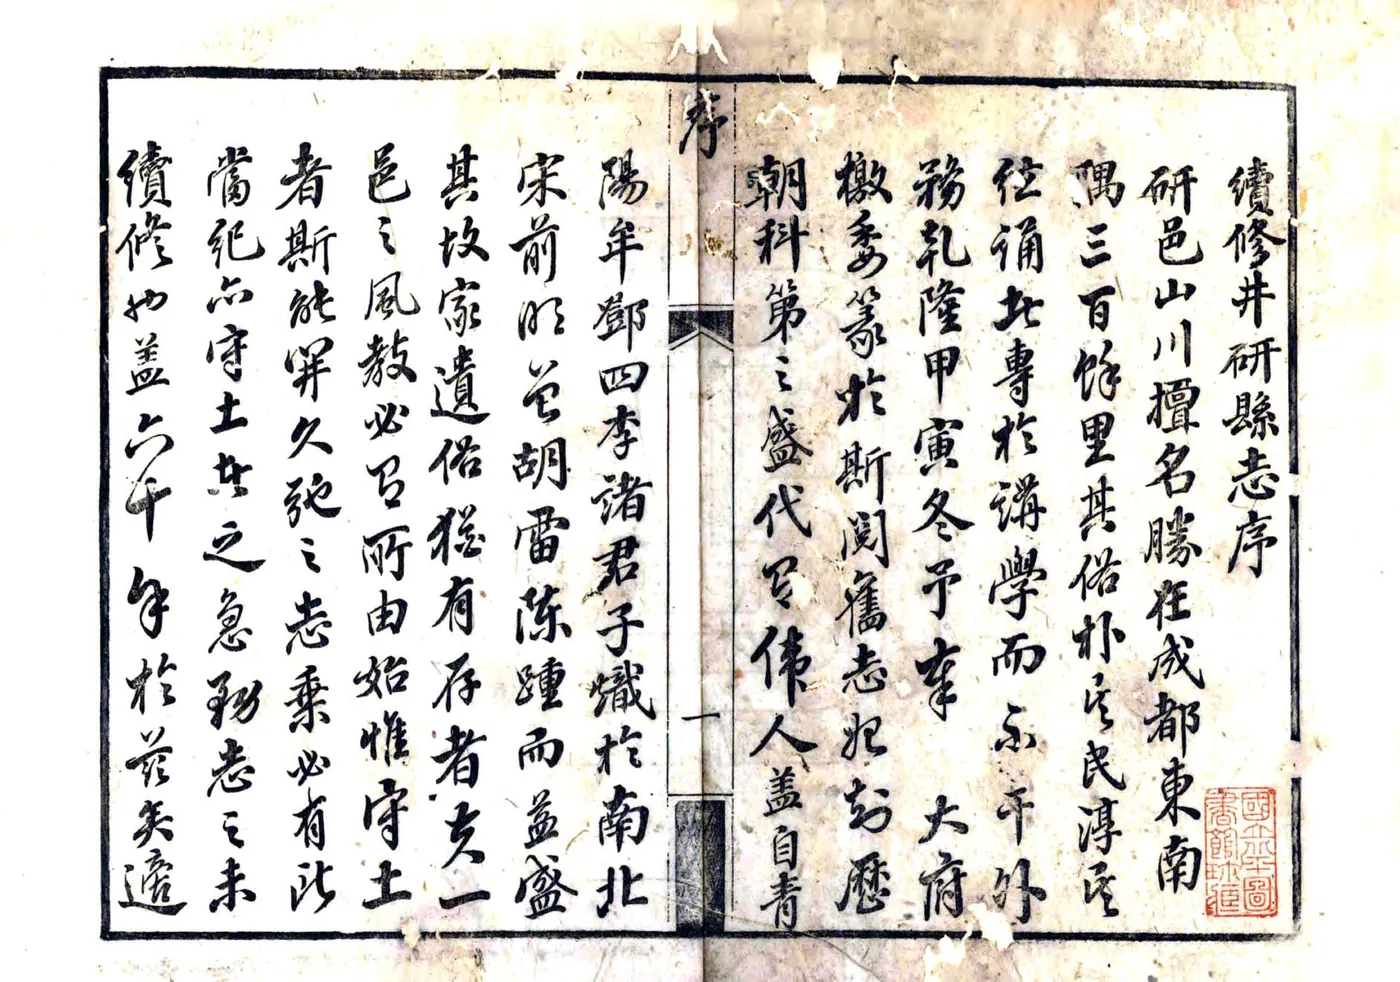 續修井研縣志序
研邑山川擅名勝在成都東南
隅三百餘里其俗朴其民淳其
仕誦者專於講學而不干外
務乾隆甲寅冬予奉 大府
檄委篆於斯閱舊志始知歷
朝科第之盛代有偉人蓋自青
序
一
陽牟鄧四李諸君子熾於南北
宋前明曾胡雷陳踵而益盛
其故家遺俗猶有存者夫一
邑之風教必有所由始惟守土
者斯能開久弛之志乘必有所
當紀亦守土者之急務志之未
續修也蓋六十年於茲矣適
國立北平圖
書館珍藏